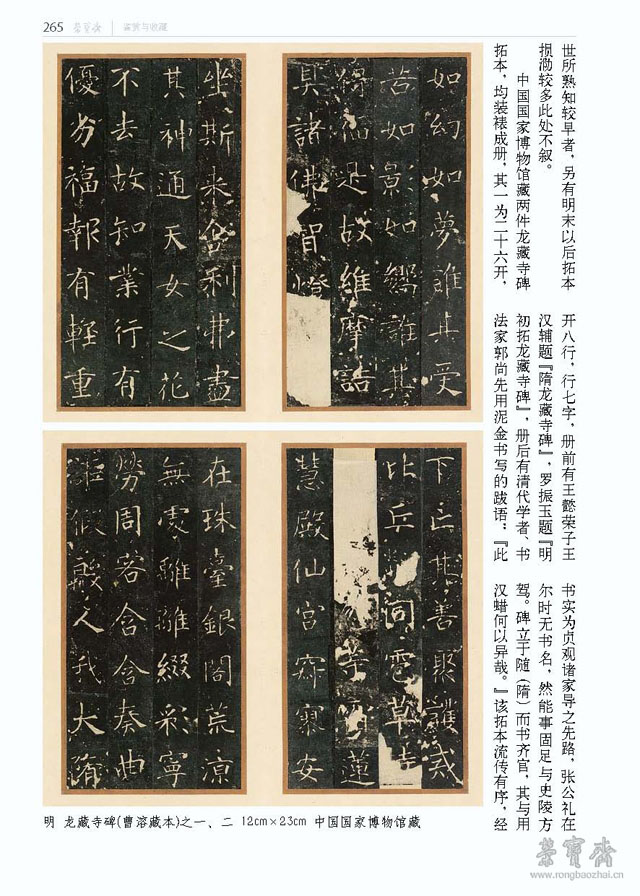 265 荣宝斋 鉴赏与收藏
世所熟知较早者，另有明末以后拓本
损泐较多此处不叙。
中国国家博物馆藏两件龙藏寺碑
拓本，均装裱成册，其一为二十六开，
开八行，行七字，册前有王懿荣子王
汉辅题『隋龙藏寺碑』，罗振玉题『明
初拓龙藏寺碑』，册后有清代学者、书
法家郭尚先用泥金书写的跋语：『此
书实为贞观诸家导之先路，张公礼在
尔时无书名，然能事固足与史陵方
驾。碑立于随（隋）而书齐官，其与用
汉蜡何以异哉。』该拓本流传有序，经
如幻如夢誰其受
苦如影如響誰其
得福是故維摩詰
具諸佛智燈
坐斯来舍利弗盡
其神通天女之花
不去故知業行有
優劣福報有輕重
下之其善聚護戒
比丘詞雲草
蓮
慧殿仙宫寂寥安
在珠臺銀閣荒凉
無處離離綴彩寧
勞周客含含奏曲
詎假殷人我大隋
明 龙藏寺碑(曹溶藏本)之一、二 12cm×23cm 中国国家博物馆藏
榮寶齋
www.rongbaozhai.cn